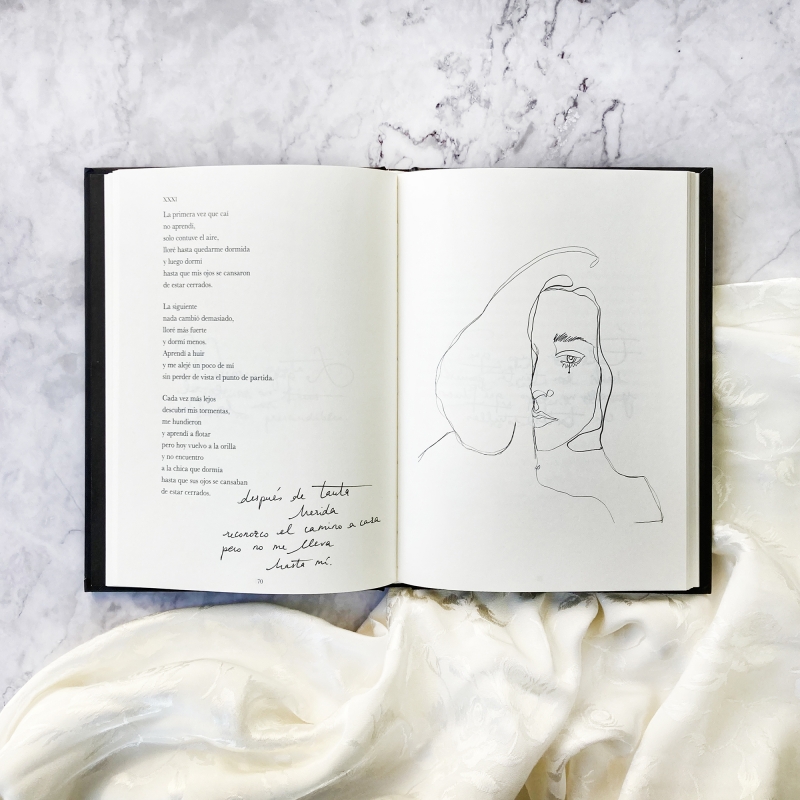 XXXI
La primera vez que caí
no aprendí,
solo contuve el aire,
lloré hasta quedarme dormida
y luego dormí
hasta que mis ojos se cansaron
de estar cerrados.
La siguiente
nada cambió demasiado,
lloré más fuerte
y dormí menos.
Aprendí a huir
y me alejé un poco de mí
sin perder de vista el punto de partida.
Cada vez más lejos
descubrí mis tormentas,
me hundieron
y aprendí a flotar
pero hoy vuelvo a la orilla
y no encuentro
a la chica que dormía
hasta que sus ojos se cansaban
de estar cerrados.
después de tanta
herida
reconozco el camino a casa
pero no me lleva
hasta mí.
70